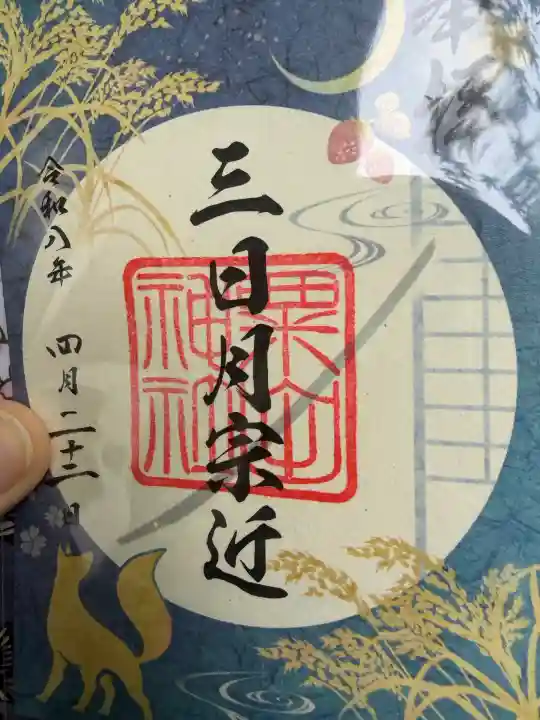 奉拝
三日月宗近
粟田
神社
令和八年 四月二十三日